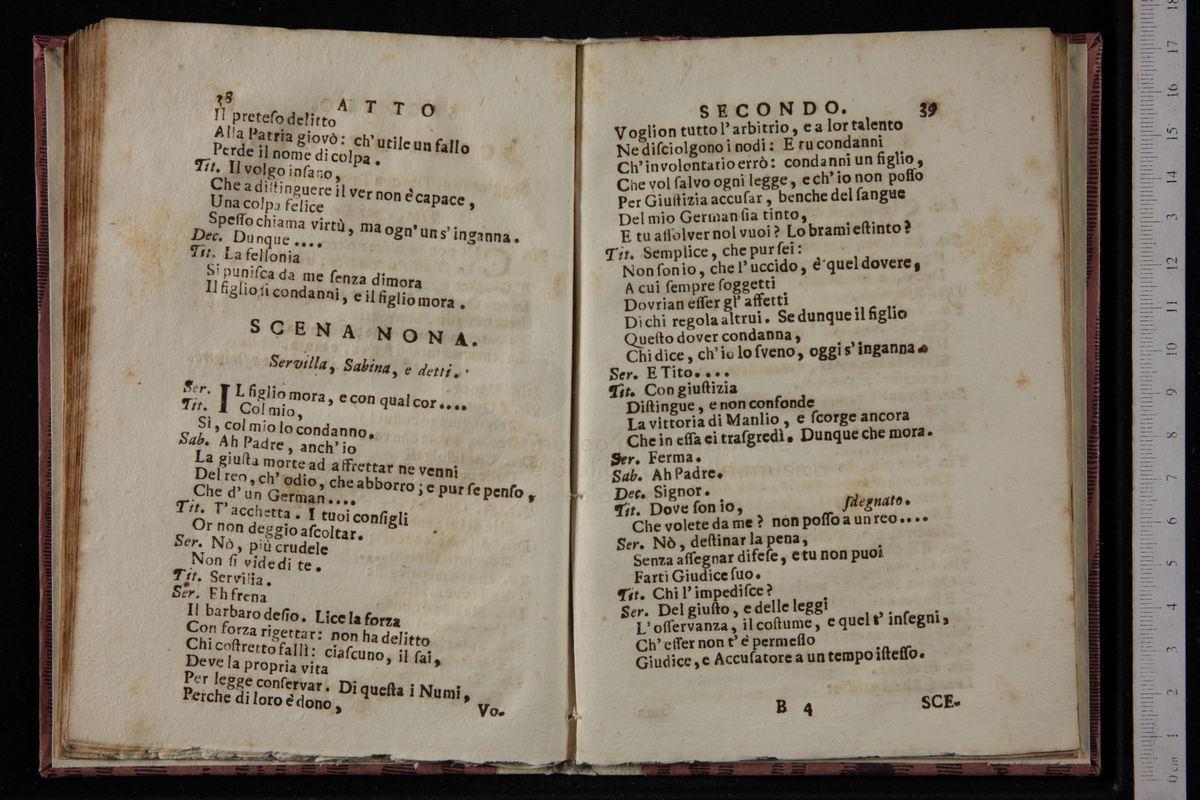 38 ATTO
Il preteſo delitto
Alla Patria giovò: ch' utile un fallo
Perde il nome di colpa.
Tit. Il volgo inſano,
Che a diſtinguere il ver non è capace,
Una colpa felice
Speſſo chiama virtù, ma ogn' un s' inganna.
Dec. Dunque ....
Tit. La fellonia
Si puniſca da me ſenza dimora
Il figlio ſi condanni, e il figlio mora.
SCENA NONA.
Servilla, Sabina, e detti.
Ser. IL figlio mora, e con qual cor ....
Tit. Col mio,
Sì, col mio lo condanno.
Sab. Ah Padre, anch' io
La giuſta morte ad affrettar ne venni
Del reo, ch' odio, che abborro; e pur ſe penſo,
Che d' un German ....
Tit. T' acchetta. I tuoi conſigli
Or non deggio aſcoltar.
Ser. Nò, più crudele
Non ſi vide di te.
Tit. Servilia.
Ser. Eh frena
Il barbaro deſio. Lice la forza
Con forza rigettar: non ha delitto
Chi coſtretto fallì: ciaſcuno, il ſai,
Deve la propria vita
Per legge conſervar. Di queſta i Numi,
Perche di loro è dono,
Vo-
SECONDO. 39
Voglion tutto l' arbitrio, e a lor talento
Ne diſciolgono i nodi: E tu condanni
Ch' involontario errò: condanni un figlio,
Che vol ſalvo ogni legge, e ch' io non poſſo
Per Giuſtizia accuſar, benche del ſangue
Del mio German ſia tinto,
E tu aſſolver nol vuoi? Lo brami eſtinto?
Tit. Semplice, che pur ſei:
Non ſon io, che l' uccido, è quel dovere,
A cui ſempre ſoggetti
Dovrian eſſer gl' affetti
Di chi regola altrui. Se dunque il figlio
Queſto dover condanna,
Chi dice, ch' io lo ſveno, oggi s' inganna.
Ser. E Tito....
Tit. Con giuſtizia
Diſtingue, e non confonde
La vittoria di Manlio, e ſcorge ancora
Che in eſſa ei traſgredì. Dunque che mora.
Ser. Ferma.
Sab. Ah Padre.
Dec. Signor.
Tit. Dove ſon io, ſdegnato.
Che volete da me? non poſſo a un reo....
Ser. Nò, deſtinar la pena,
Senza aſſegnar difeſe, e tu non puoi
Farti Giudice ſuo.
Tit. Chi l' impediſce?
Ser. Del giuſto, e delle leggi
L' oſſervanza, il coſtume, e quel t' inſegni,
Ch' eſſer non t' è permeſſo
Giudice, e Accuſatore a un tempo iſteſſo.
B 4 SCE-
0 cm 1 2 3 4 5 6 7 8 9 10 11 12 13 14 15 16 17 18